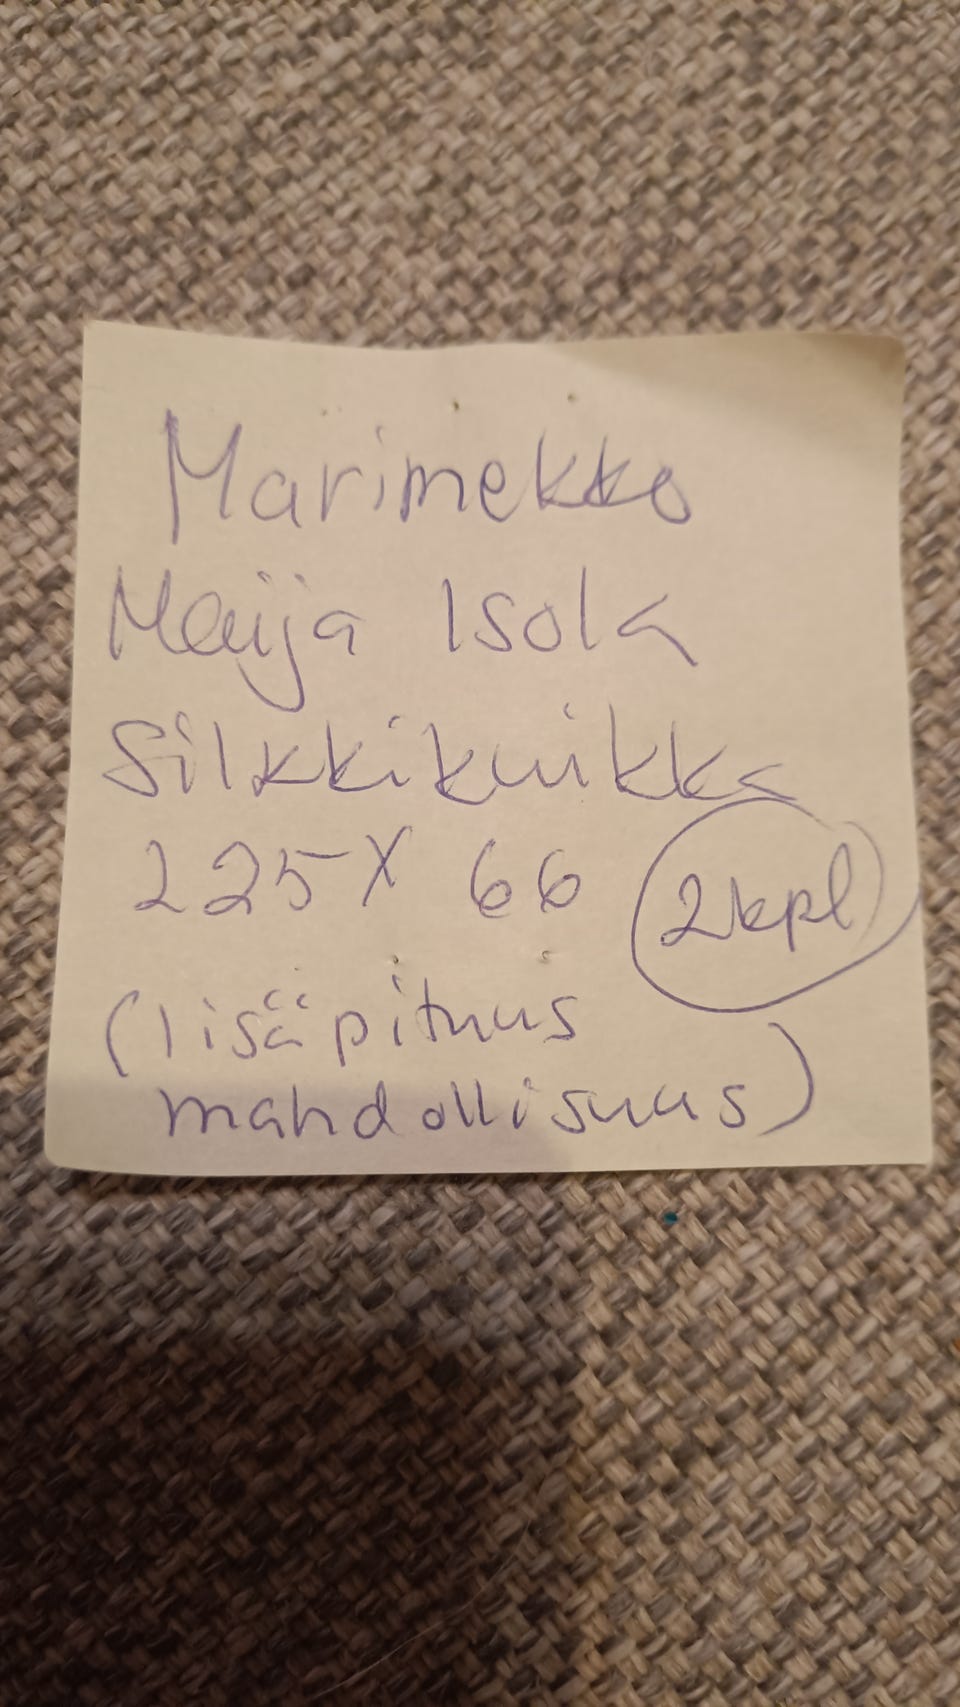 Marimekko
Maija Isola
Silkkikuikka
225 X 66 2kpl
(lisäpituus
mahdollisuus)